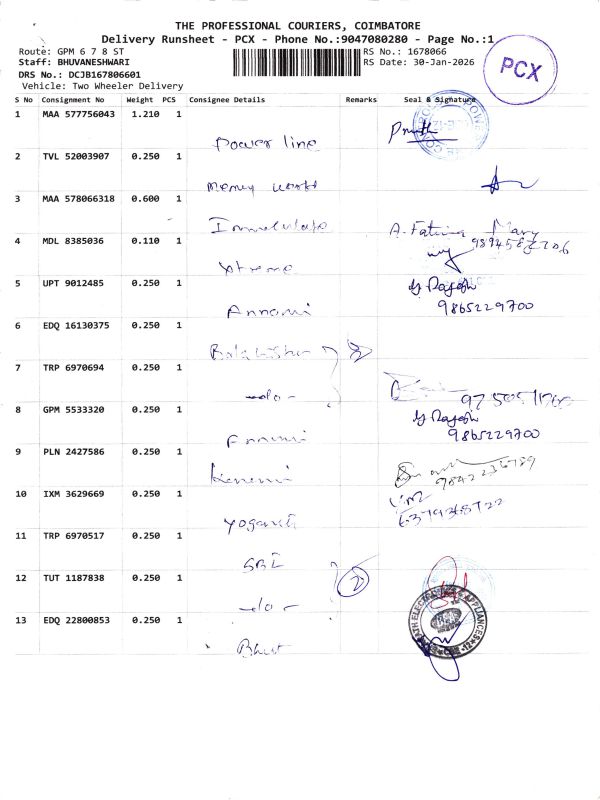 THE PROFESSIONAL COURIERS, COIMBATORE
Delivery Runsheet - PCX - Phone No.:9047080280 - Page No.:1
Route: GPM 6 7 8 ST
RS No.: 1678066
Staff: BHUVANESHWARI
RS Date: 30-Jan-2026
DRS No.: DCJB167806601
Vehicle: Two Wheeler Delivery
PCX
S No Consignment No Weight PCS Consignee Details Remarks Seal & Signature
1 MAA 577756043 1.210 1
Power line
2 TVL 52003907 0.250 1
Money world
3 MAA 578066318 0.600 1
A. Fatima Mary
4 MDL 8385036 0.110 1
Xtreme
5 UPT 9012485 0.250 1
G Rajesh
Annami
9865229700
6 EDQ 16130375 0.250 1
7 TRP 6970694 0.250 1
-do-
8 GPM 5533320 0.250 1
G Rajesh
9865229700
9 PLN 2427586 0.250 1
10 IXM 3629669 0.250 1
Yoganath
11 TRP 6970517 0.250 1
SBI
12 TUT 1187838 0.250 1
2
-do-
13 EDQ 22800853 0.250 1